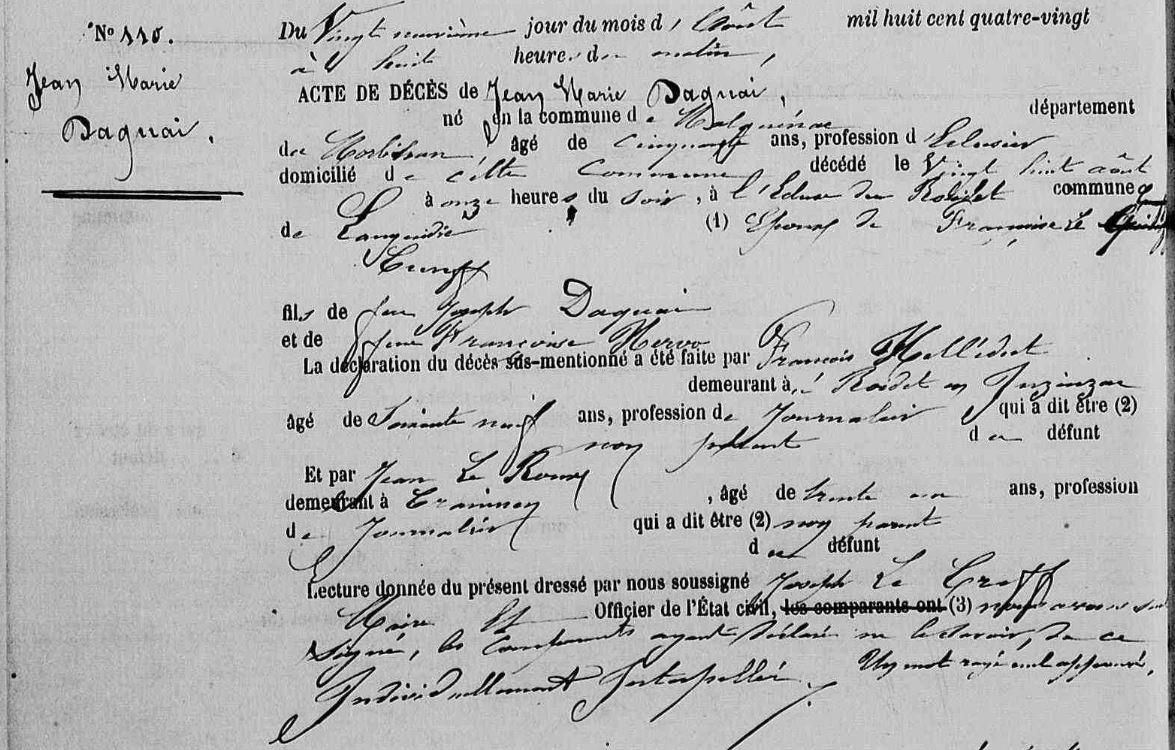 N° 110.
Jean Marie
Daguai.
Du Vingt neuvième jour du mois d' Août mil huit cent quatre-vingt
à huit heures du matin,
ACTE DE DÉCÈS de Jean Marie Daguai,
né en la commune de département
du Morbihan, âgé de cinquante ans, profession d'Eclusier
domicilié de cette Commune, décédé le Vingt huit août
à onze heures du soir, à l'Ecluse du commune
de Languidic (1) Epoux de Françoise Le
Cunff
fils de feu Joseph Daguai
et de feue Françoise Hervo
La déclaration du décès sus-mentionné a été faite par François
demeurant à en Inzinzac
âgé de Soixante neuf ans, profession de Journalier qui a dit être (2)
non parent du défunt
Et par Jean Le Roux
demeurant à , âgé de trente ans, profession
de Journalier qui a dit être (2) non parent
du défunt
Lecture donnée du présent dressé par nous soussigné Joseph Le
Maire Et Officier de l'État civil, les comparants ont (3) nous avons
signé, les comparants ayant déclaré ne le savoir, de ce
Individuellement Interpellés. Un mot rayé nul approuvé,